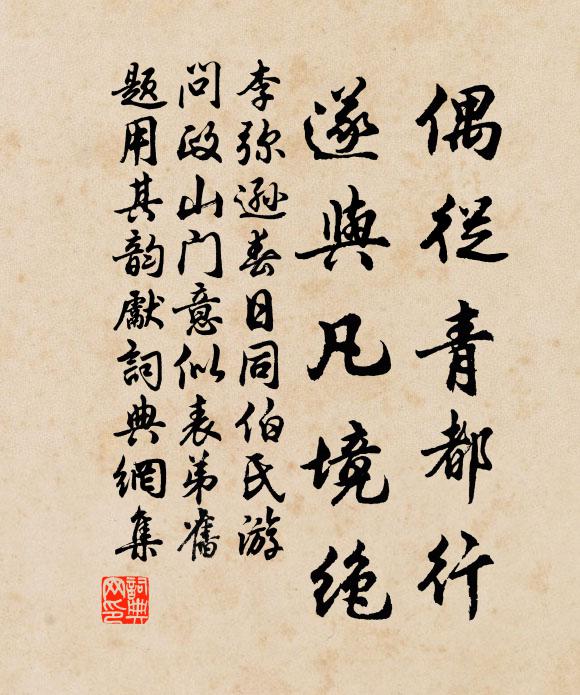 偶從青都行
遂與凡境絶
李弥遜春日同伯氏游
問政山门意似表弟舊
題用其韵獻詞典網集
詞典网印